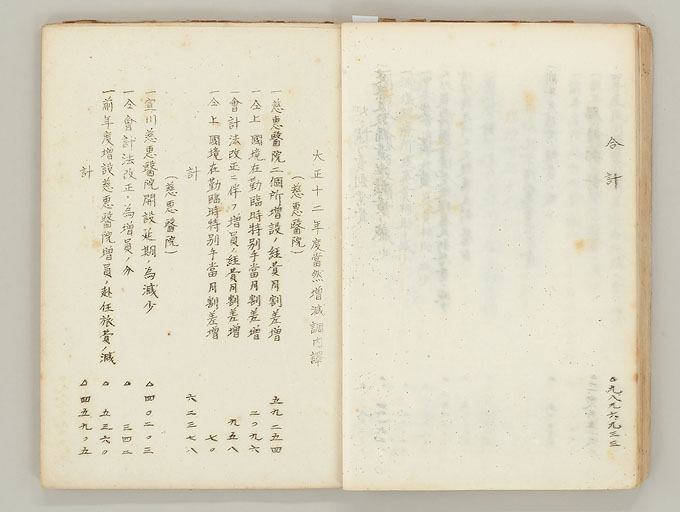 合計 △九八九六九三三
大正十二年度當然増減調内譯
(慈惠醫院)
一慈惠醫院二個所増設ノ経費月割差増 五九二五四
一仝上國境在勤臨時特別手當月割差増 二〇九六
一會計法改正ニ伴フ増員ノ経費月割差増 九五八
一仝上國境在勤臨時特別手當月割差増 七〇
計 六二三七八
(慈惠醫院)
一宣川慈惠醫院開設延期ノ為減少 △四〇二〇三
一仝會計法改正ノ為増員ノ分 △三四二
一前年度増設慈惠醫院増員ノ赴任旅費ノ減 △五三六〇
計 △四五九〇五